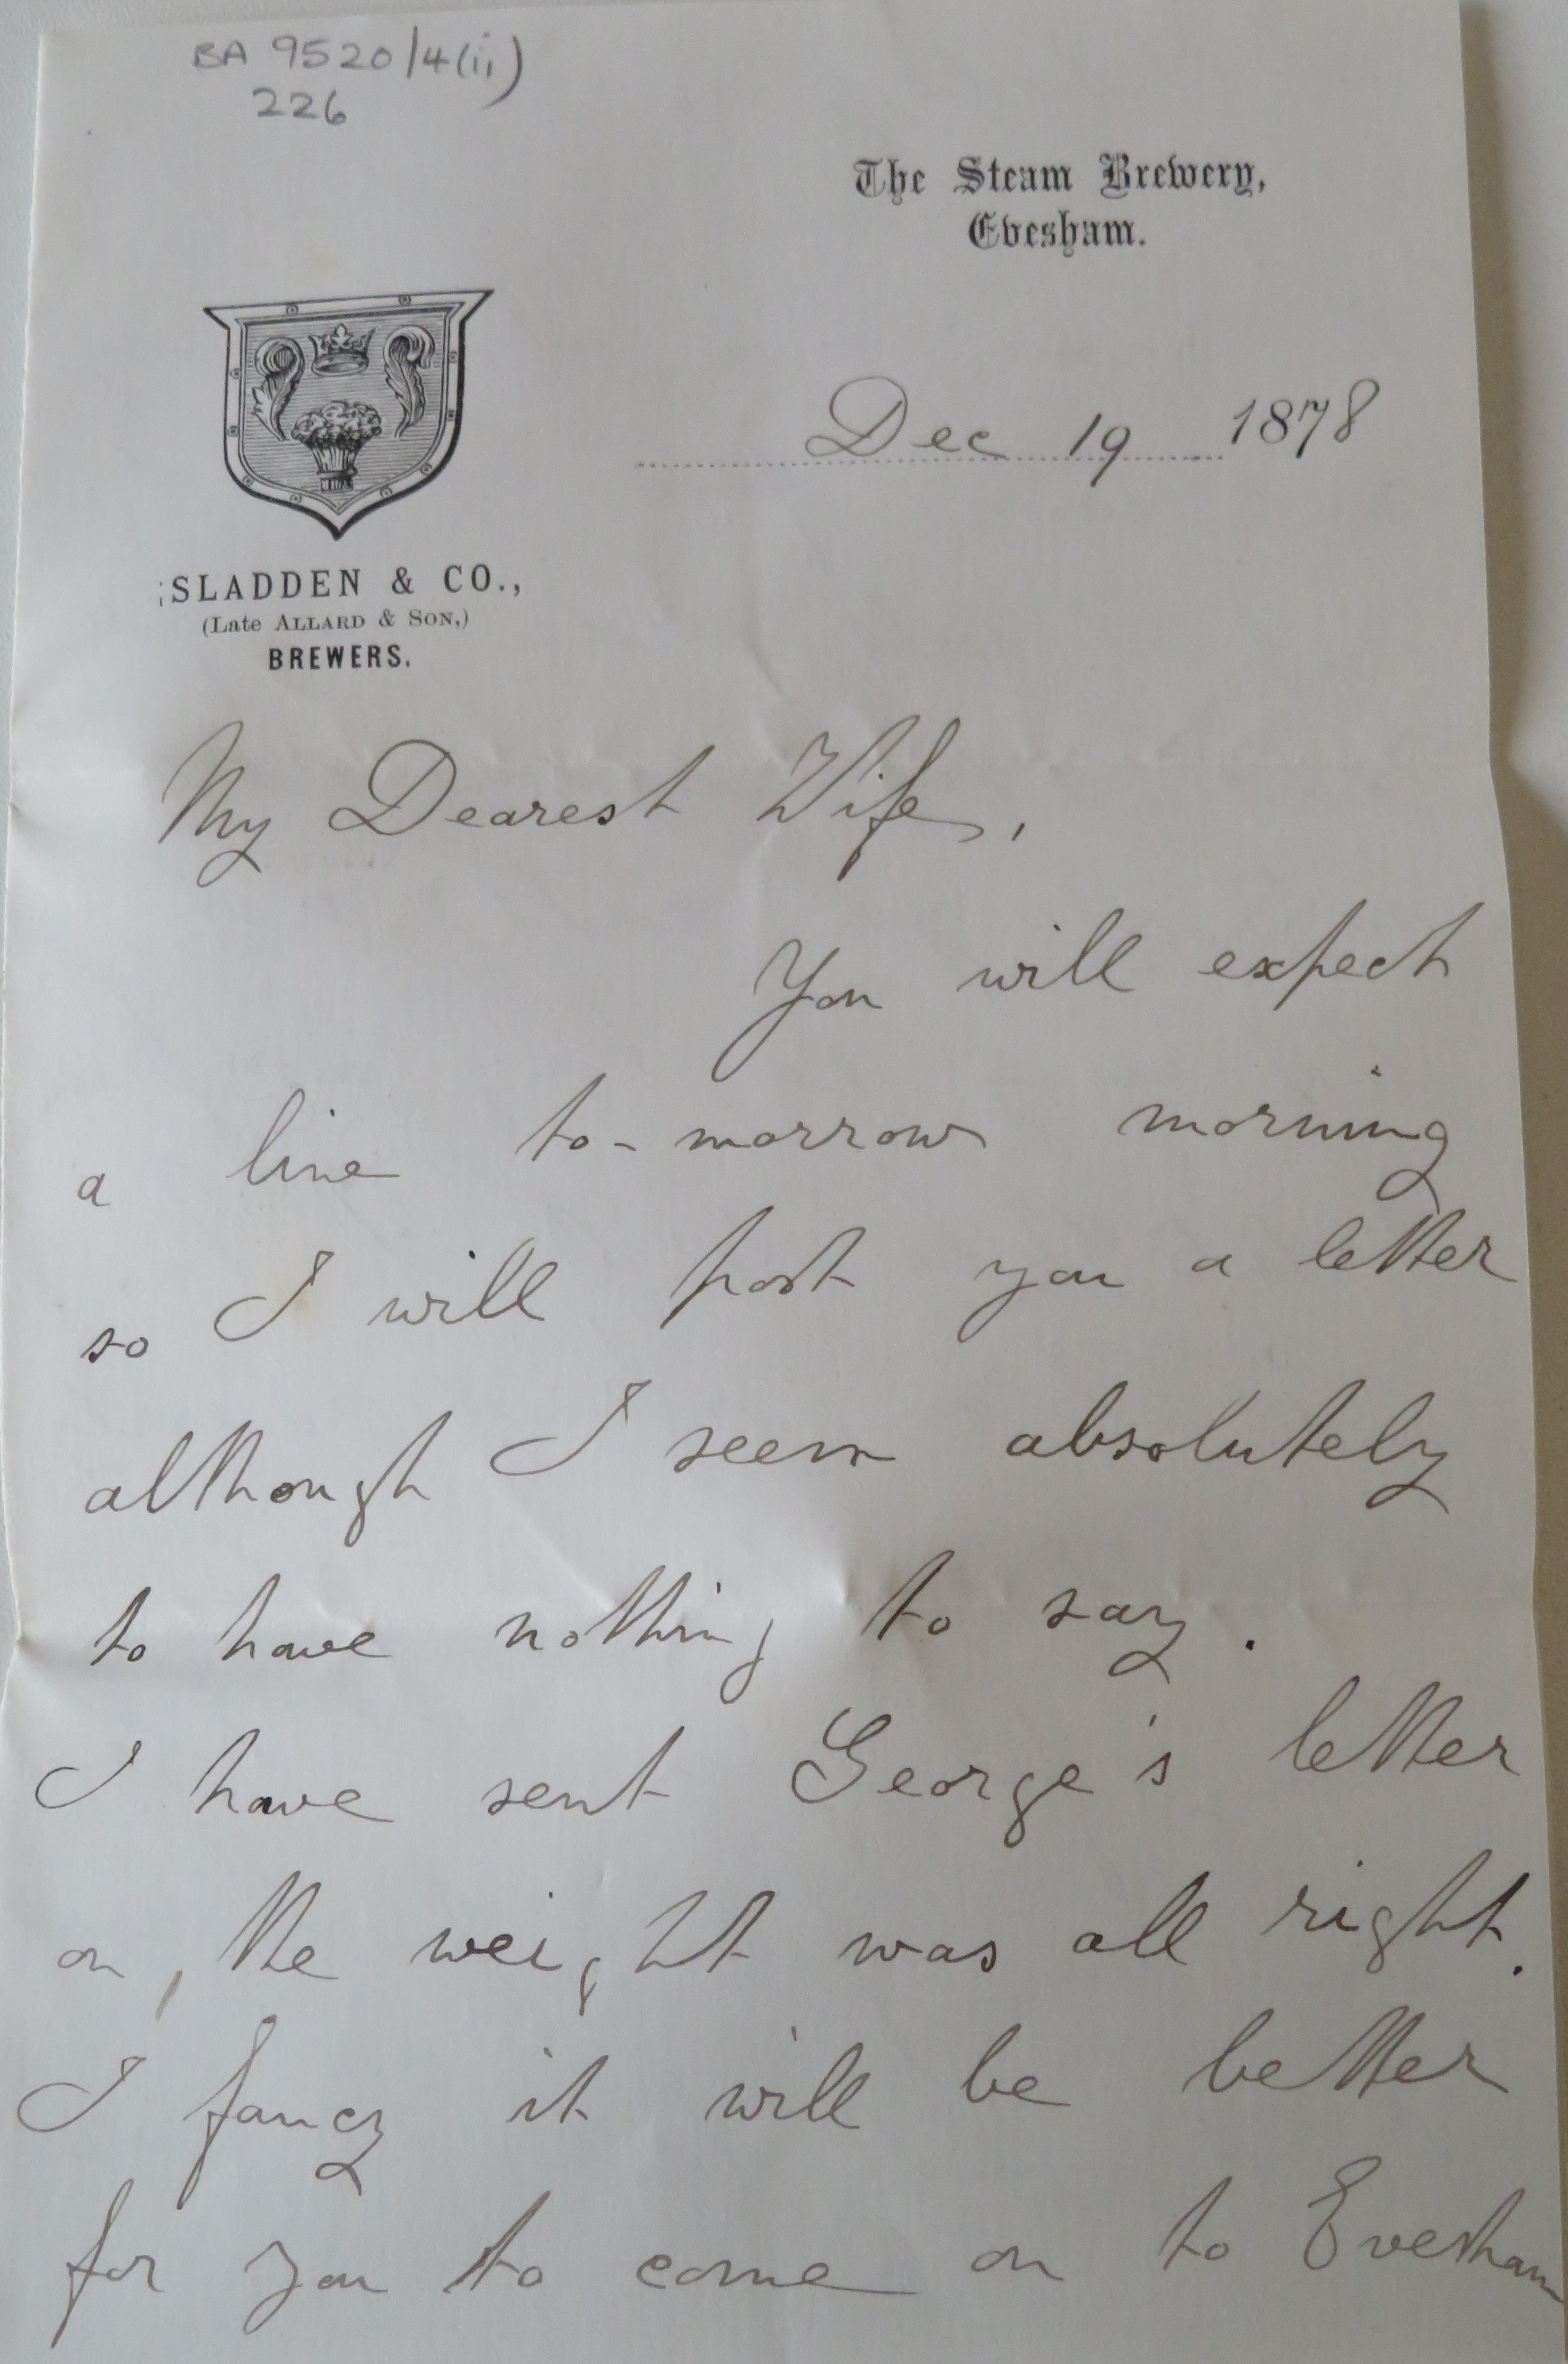 BA 9520/4(ii)
226
The Steam Brewery,
Evesham.
Dec 19 1878
SLADDEN & CO.,
(Late ALLARD & SON,)
BREWERS.
My Dearest Wife,
You will expect
a line to-morrow morning
so I will post you a letter
although I seem absolutely
to have nothing to say.
I have sent George's letter
on, the weight was all right.
I fancy it will be better
for you to come on to Evesham